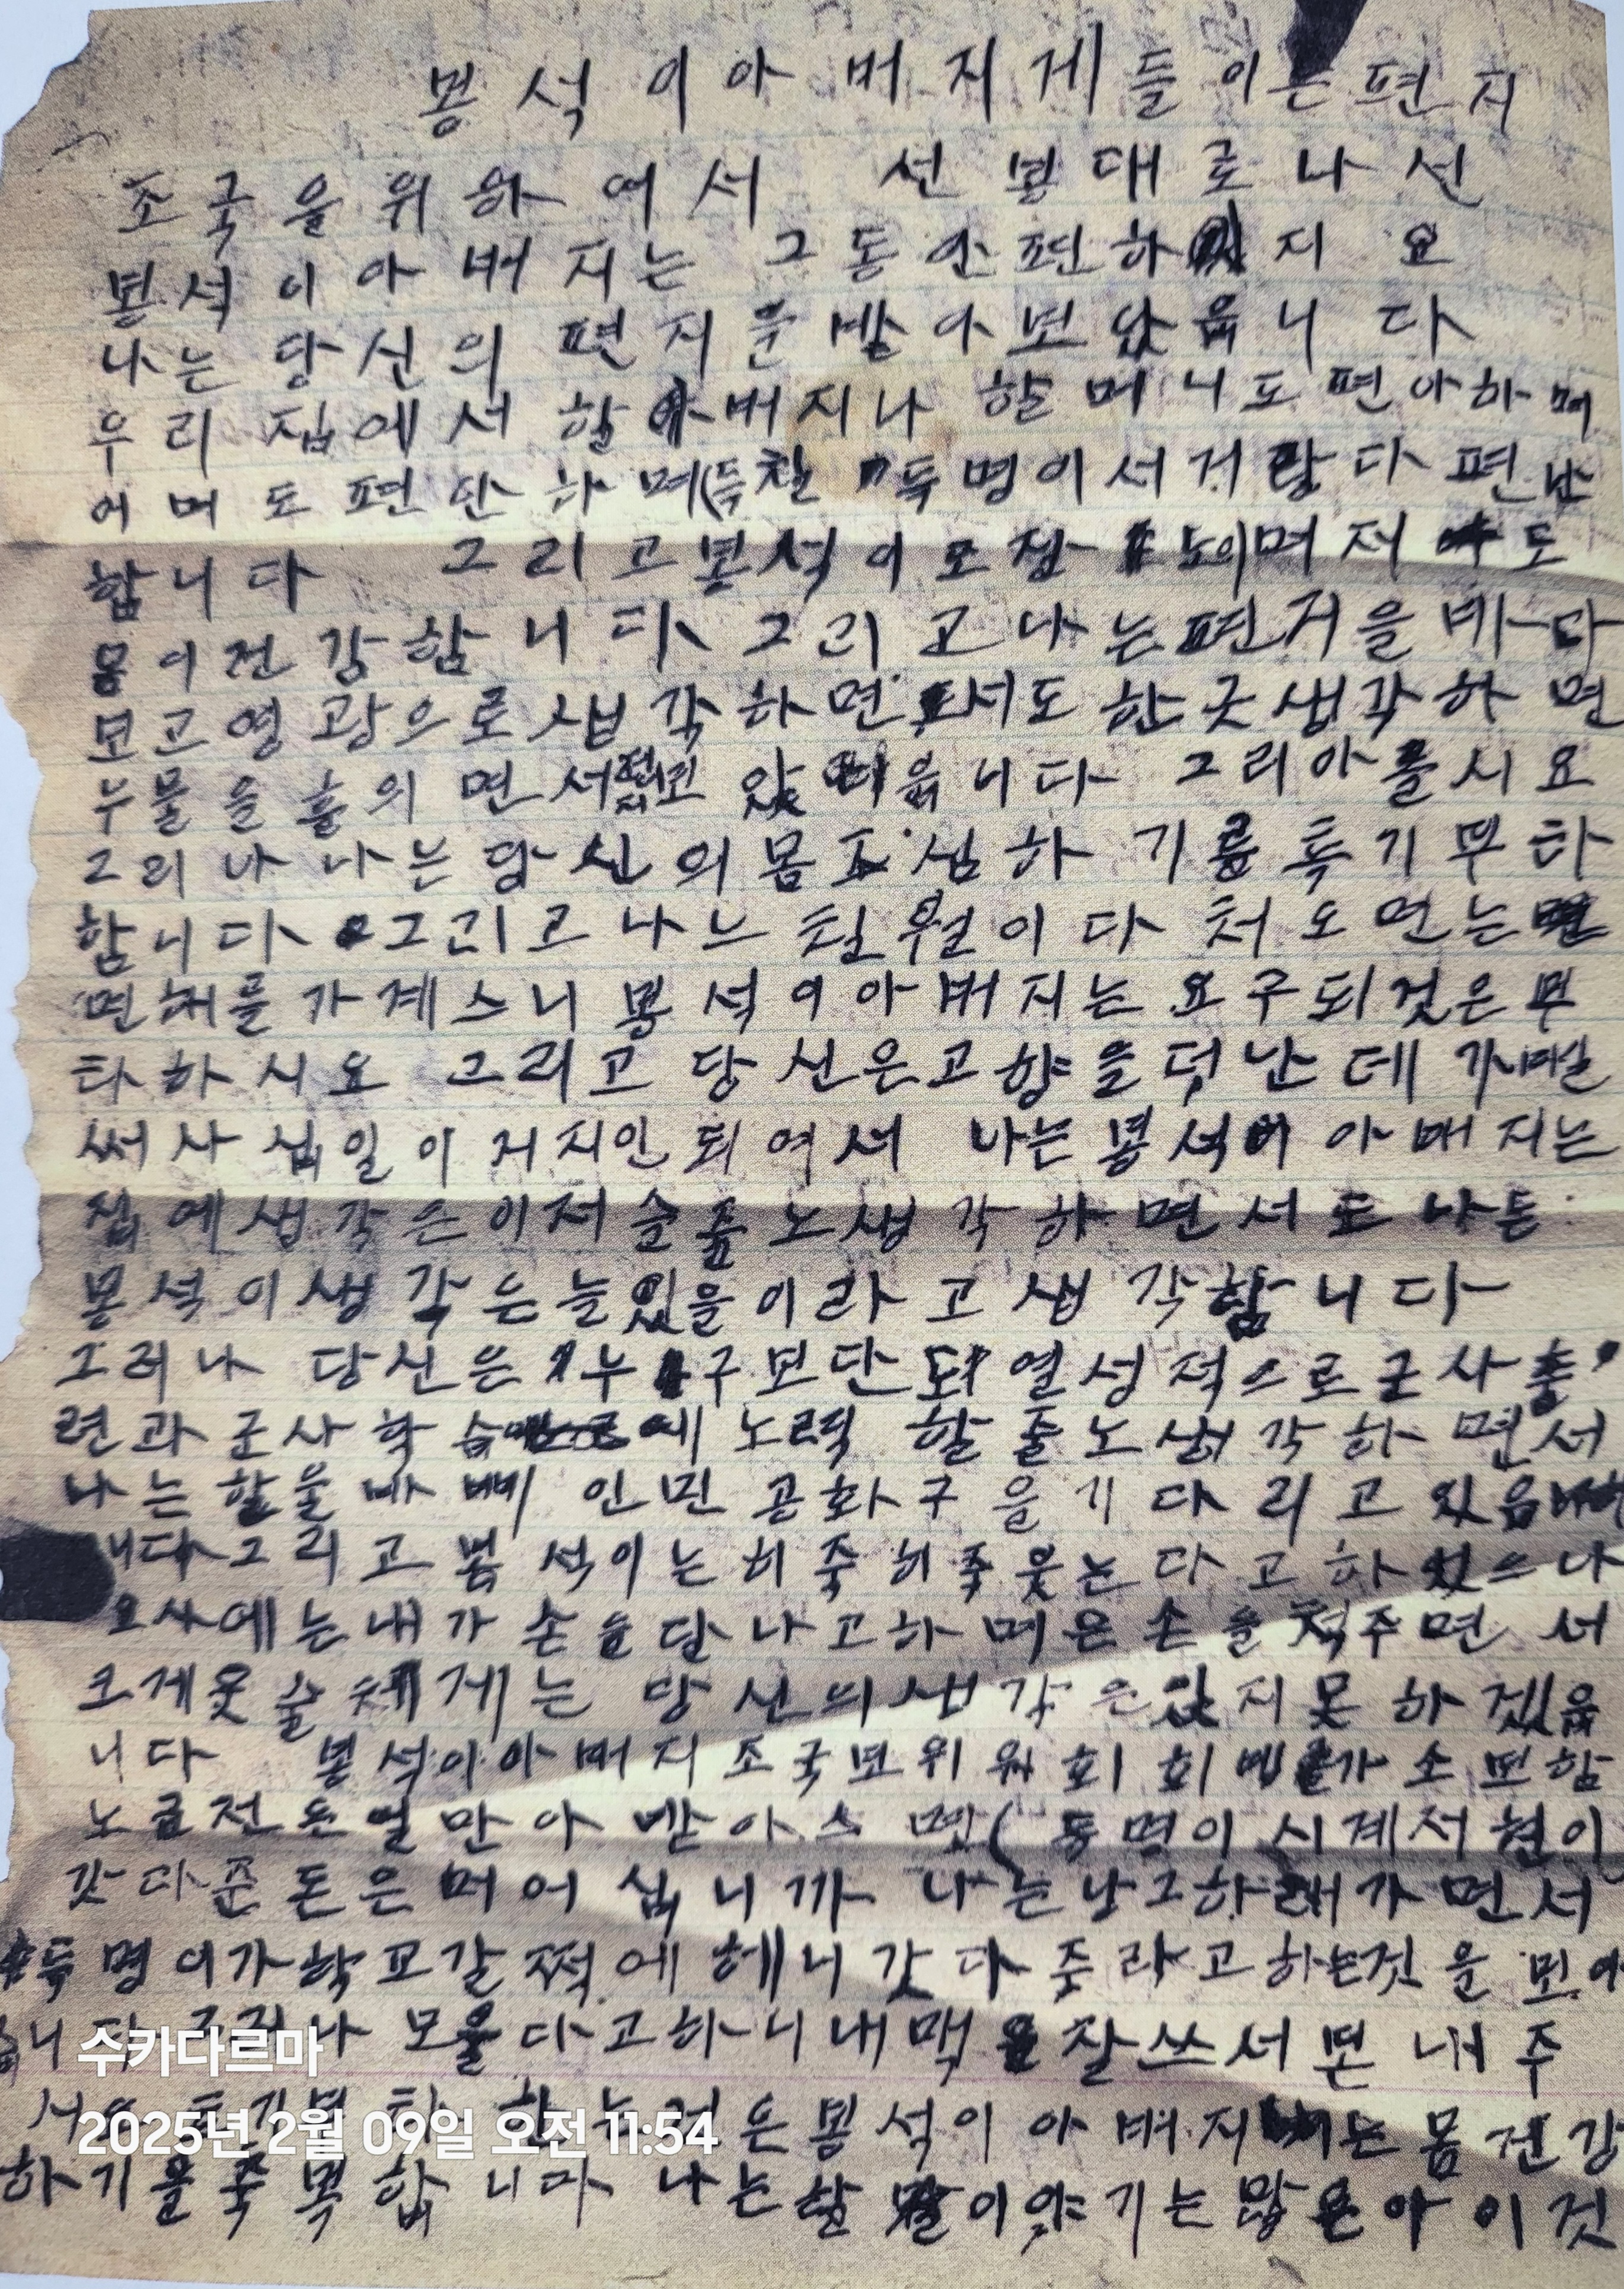 봉석이아버지게들이는편지
조국을위하여서 선봉대로나선
봉석이아버지는 그동안편하 지요
나는당신의편지을받아보았읍니다
우리집에서할아버지나할머니도편아하며
어머도편안하며(득찰 득명이서거랑다편안
합니다 그리고봉석이 이며저도
몸이건강함니다 그리고나는편지을바다
보고영광으로생각하면서도한굿생각하면
누물을흘의면서 있 읍니다 그리아를시요
그리나나는당신의몸조심하기를특기부타
함니다 그리고나느칠월이다처오면는
면해를가계스니봉석이아버지는요구되것은부
타하시요 그리고당신은고향을떳난데
써사십일이저지안되여서 나는봉석이아배지는
집에생각은이저슬줄노생각하면서도나는
봉석이생각은늘있을이라고생각함니다
그러나당신은누구보단되열성적으로군사훌
련과군사학습에노력할줄노생각하면서
나는할울바삐인민공화구을기다리고있음
니다그리고봉석이는히죽히죽웃는다고하있으나
오사에는내가손을달나고하며은손을척주면서
크게웃슬체게는당신의생각은있지못하겠읍
니다 봉석이아버지조국보위위회회비 가소모함
노금전돈얼만아받아스멧(득명이시계서현이
갓다준돈은머어십니까 나는낭그하래가면서
득명이가학교갈쩍에헤니갓다주라고하는것을보아
니다 그러나모울다고하니내맥을잘쓰서본내주
서요 특기부타 한 는것은봉석이아버지는몸건강
하기을죽복합니다 나는할말이야기는많은아이것
수카다르마
2025년 2월 09일 오전 11:54